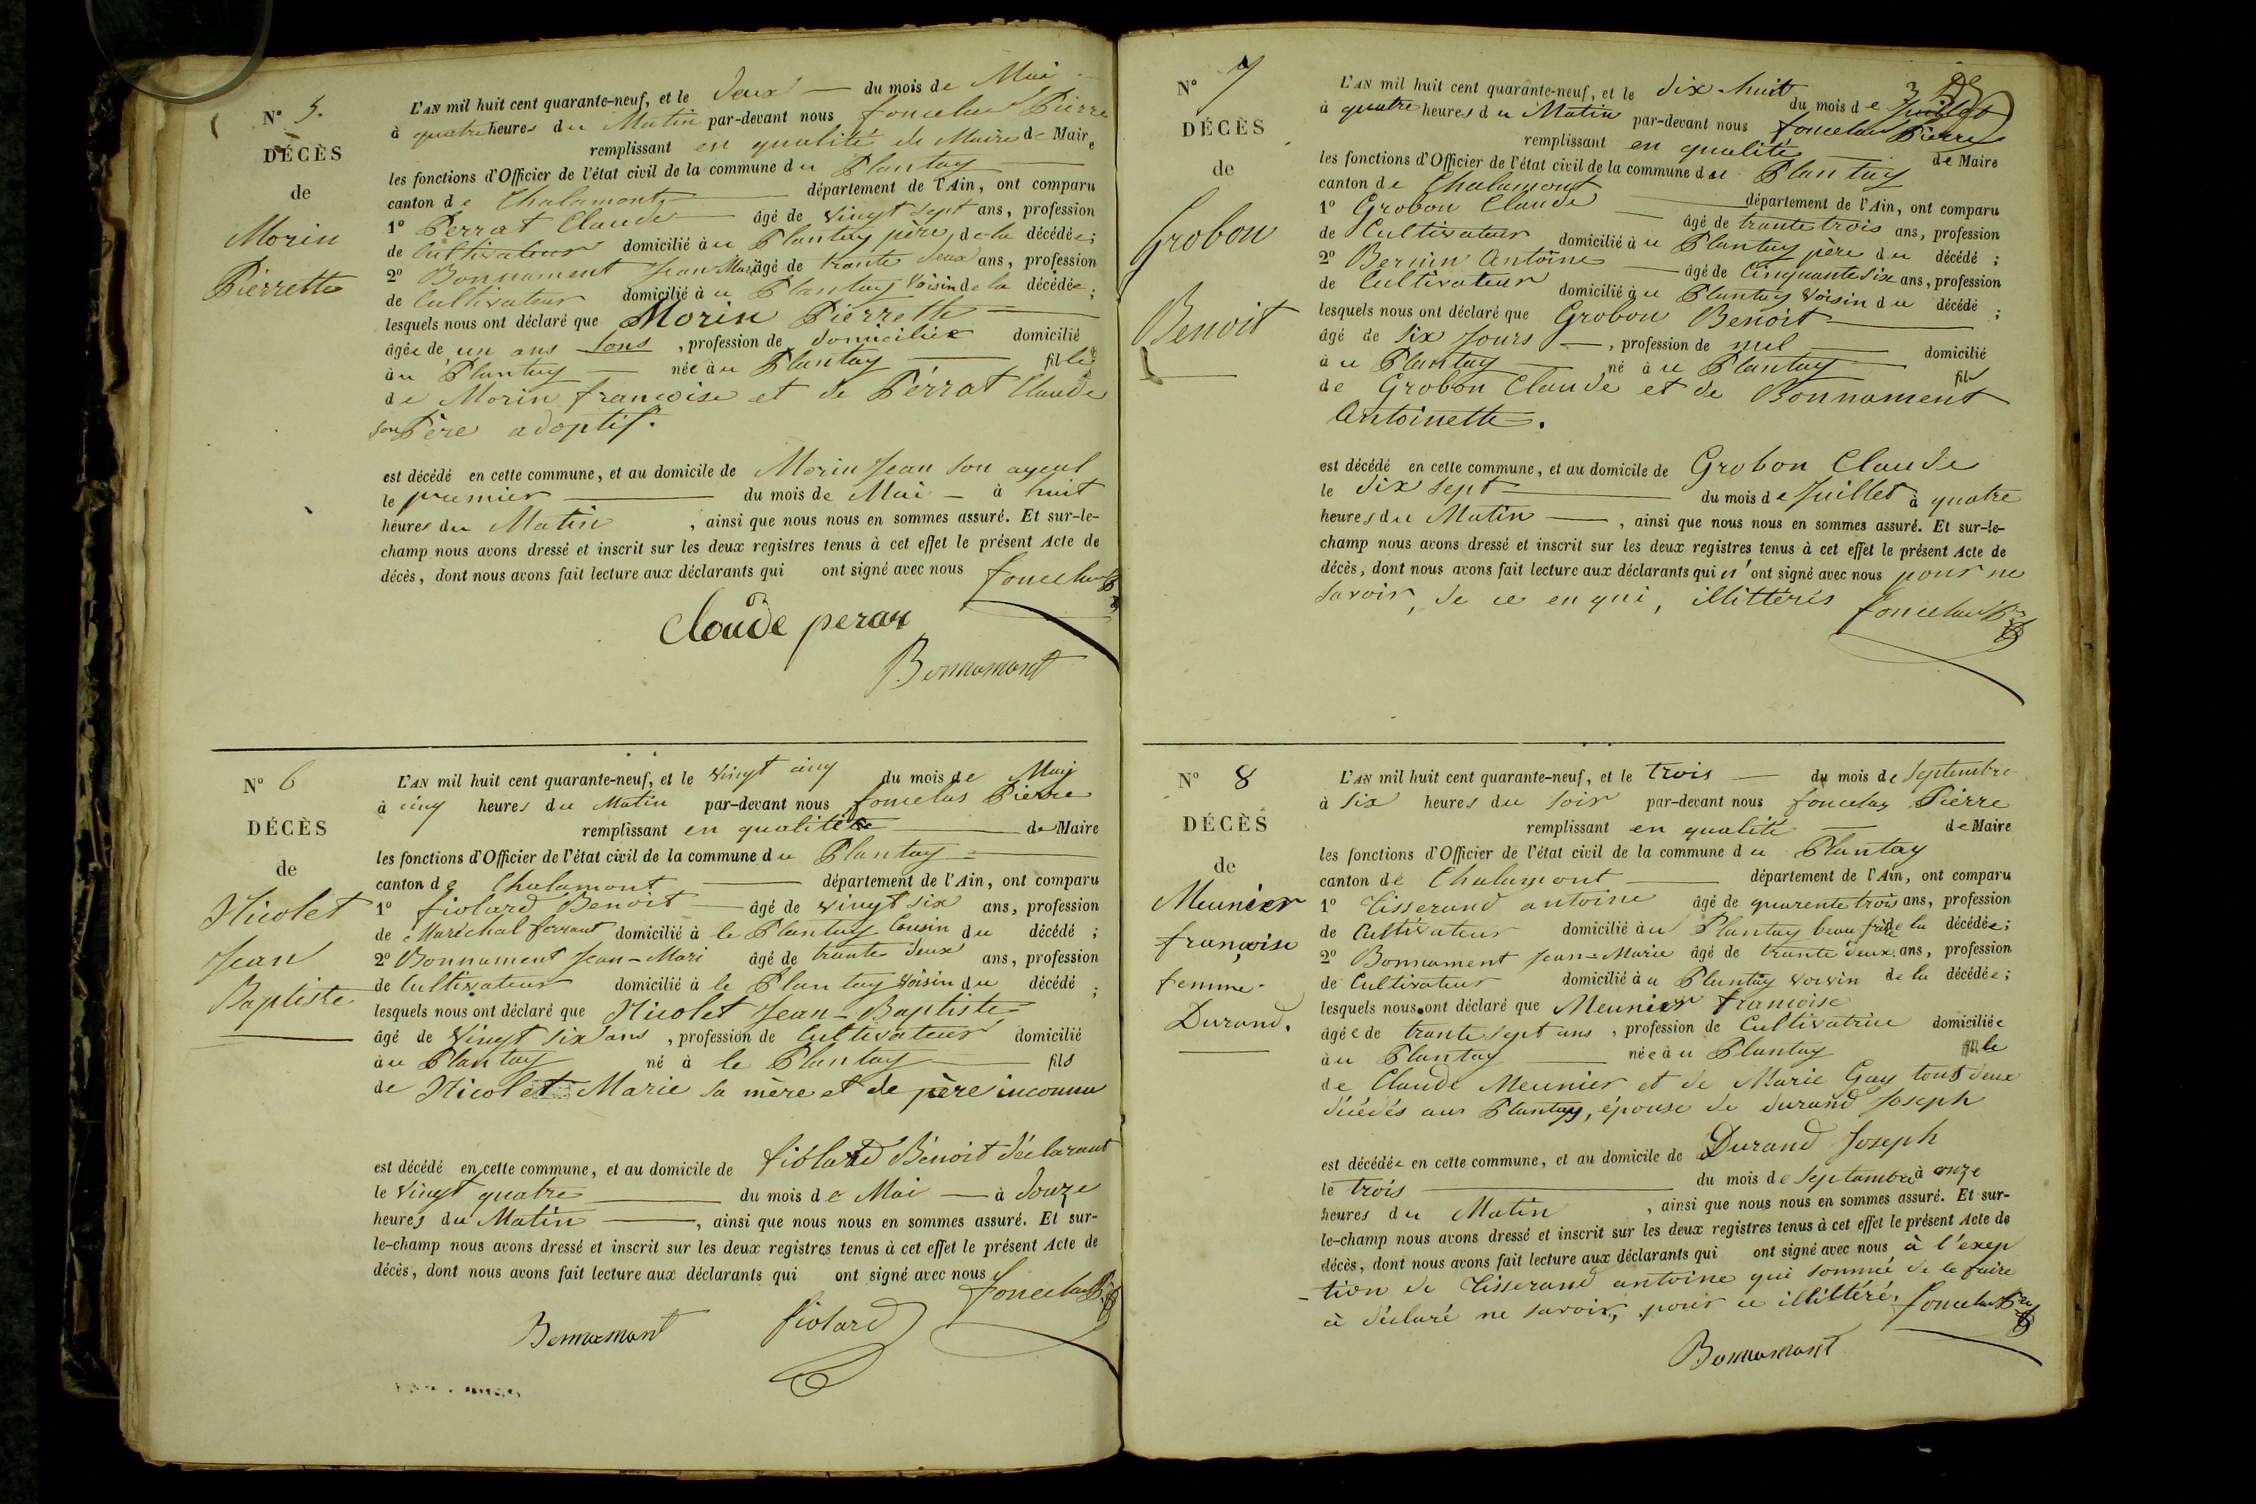 N° 5.
DÉCÈS
de
Morin
Pierrette
L'AN mil huit cent quarante-neuf, et le deux du mois de Mai
à quatre heures du Matin par-devant nous foncelas Pierre
remplissant en qualité de Maire de Maire
les fonctions d'Officier de l'état civil de la commune du Plantay
canton de Chalamont département de l'Ain, ont comparu
1° Perrat Claude âgé de vingt sept ans, profession
de Cultivateur domicilié àu Plantay père, de la décédée;
2° Bonnament Jean-Marie âgé de trante deux ans, profession
de Cultivateur domicilié àu Plantay Voisin de la décédée;
lesquels nous ont déclaré que Morin Pierrette
âgée de un ans sans, profession de domiciliée domicilié
àu Plantay née àu Plantay fille
de Morin francoise et de Pérrat Claude
son Père adoptif.
est décédé en cette commune, et au domicile de Morin Jean son ayeul
le premier du mois de Mai à huit
heures du Matin, ainsi que nous nous en sommes assuré. Et sur-le-
champ nous avons dressé et inscrit sur les deux registres tenus à cet effet le présent Acte de
décès, dont nous avons fait lecture aux déclarants qui ont signé avec nous foncelas
Cloude perax
Bonnamant
N° 6
DÉCÈS
de
Nicolet
Jean
Baptiste
L'AN mil huit cent quarante-neuf, et le vingt cinq du mois de May
à cinq heures du Matin par-devant nous foncelas Pierre
remplissant en qualité de Maire
les fonctions d'Officier de l'état civil de la commune du Plantay
canton de Chalamont département de l'Ain, ont comparu
1° fiolard Benoit âgé de vingt six ans, profession
de Maréchal ferrant domicilié à le Plantay Cousin du décédé;
2° Bonnament Jean-Mari âgé de trante deux ans, profession
de Cultivateur domicilié à le Plantay Voisin du décédé;
lesquels nous ont déclaré que Nicolet Jean-Baptiste
âgé de Vingt six ans, profession de Cultivateur domicilié
àu Plantay né à le Plantay fils
de Nicolet Marie sa mère et de père inconnu
est décédé en cette commune, et au domicile de fiolard Bénoit déclarant
le Vingt quatre du mois de Mai à douze
heures du Matin, ainsi que nous nous en sommes assuré. Et sur-
le-champ nous avons dressé et inscrit sur les deux registres tenus à cet effet le présent Acte de
décès, dont nous avons fait lecture aux déclarants qui ont signé avec nous foncelas
Bonnamant fiolard
N° 7
DÉCÈS
de
Grobon
Benoit
L'AN mil huit cent quarante-neuf, et le dix-huit du mois de Juillet
à quatre heures du Matin par-devant nous foncelas Pierre
remplissant en qualité de Maire
les fonctions d'Officier de l'état civil de la commune du Plantay
canton de Chalamont département de l'Ain, ont comparu
1° Grobon Claude âgé de trante trois ans, profession
de Cultivateur domicilié àu Plantay père du décédé;
2° Bernin Antoine âgé de Cinquante six ans, profession
de Cultivateur domicilié àu Plantay Voisin du décédé;
lesquels nous ont déclaré que Grobon Benoit
âgé de Six Jours, profession de nul domicilié
àu Plantay né àu Plantay fils
de Grobon Claude et de Bonnament
Antoinette.
est décédé en cette commune, et au domicile de Grobon Claude
le dix sept du mois de Juillet à quatre
heures du Matin, ainsi que nous nous en sommes assuré. Et sur-le-
champ nous avons dressé et inscrit sur les deux registres tenus à cet effet le présent Acte de
décès, dont nous avons fait lecture aux déclarants qui n'ont signé avec nous pour ne
savoir, de ce enqui, illittérés foncelas
N° 8
DÉCÈS
de
Meunier
françoise
femme
Durand.
L'AN mil huit cent quarante-neuf, et le trois du mois de Septembre
à Six heures du soir par-devant nous foncelas Pierre
remplissant en qualité de Maire
les fonctions d'Officier de l'état civil de la commune du Plantay
canton de Chalamont département de l'Ain, ont comparu
1° Tisserand antoine âgé de quarente trois ans, profession
de Cultivateur domicilié àu Plantay beau frère de la décédée;
2° Bonnament Jean-Marie âgé de trante deux ans, profession
de Cultivateur domicilié àu Plantay Voisin de la décédée;
lesquels nous ont déclaré que Meunier francoise
âgée de trante sept ans, profession de Cultivatrice domiciliée
àu Plantay née àu Plantay fille
de Claude Meunier et de Marie Gay tous deux
décédés au Plantay, épouse de durand Joseph
est décédée en cette commune, et au domicile de Durand Joseph
le trois du mois de Septambre à onze
heures du Matin, ainsi que nous nous en sommes assuré. Et sur-
le-champ nous avons dressé et inscrit sur les deux registres tenus à cet effet le présent Acte de
décès, dont nous avons fait lecture aux déclarants qui ont signé avec nous à l'exep
-tion de Tisserand antoine qui sommé de le faire
à déclaré ne savoir, pour ce illittéré. foncelas
Bonnamant